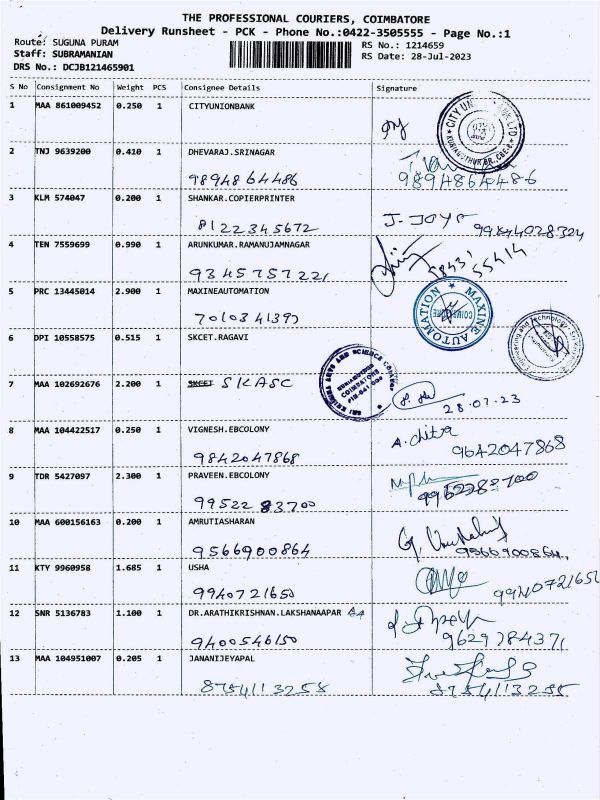 THE PROFESSIONAL COURIERS, COIMBATORE
Delivery Runsheet - PCK - Phone No.:0422-3505555 - Page No.:1
Route: SUGUNA PURAM RS No.: 1214659
Staff: SUBRAMANIAN RS Date: 28-Jul-2023
DRS No.: DCJB121465901
S No Consignment No Weight PCS Consignee Details Signature
1 MAA 861009452 0.250 1 CITYUNIONBANK
2 TNJ 9639200 0.410 1 DHEVARAJ.SRINAGAR
9894864486 9894864486
3 KLM 574047 0.200 1 SHANKAR.COPIERPRINTER
8122345672 J. JOYS
4 TEN 7559699 0.990 1 ARUNKUMAR.RAMANUJAMNAGAR
9345757221
5 PRC 13445014 2.900 1 MAXINEAUTOMATION
MAXINE AUTOMATION
COIMBATORE
6 DPI 10558575 0.515 1 SKCET.RAGAVI
7 MAA 102692676 2.200 1 SKCET SKASC
28.07.23
8 MAA 104422517 0.250 1 VIGNESH.EBCOLONY
A. chitra
9842047868 9642047868
9 TDR 5427097 2.300 1 PRAVEEN.EBCOLONY
10 MAA 600156163 0.200 1 AMRUTIASHARAN
9566900864 9566900864
11 KTY 9960958 1.685 1 USHA
9940721650 9940721650
12 SNR 5136783 1.100 1 DR.ARATHIKRISHNAN.LAKSHANAAPAR
9400546150 9629784371
13 MAA 104951007 0.205 1 JANANIJEYAPAL
8754113258 8754113258